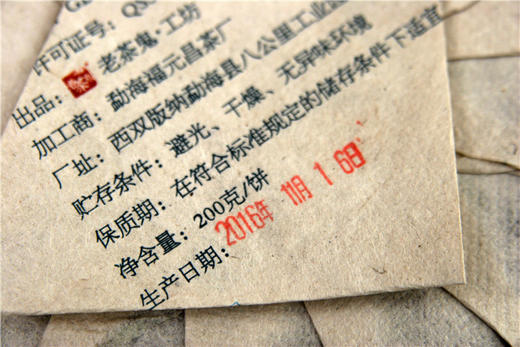 许可证号：QS
出品：老茶鬼·工坊
加工商：勐海福元昌茶厂
厂址：西双版纳勐海县八公里工业
贮存条件：避光、干燥、无异味环境
保质期：在符合标准规定的储存条件下适宜
净含量：200克/饼
生产日期：2016年 11月 1 6日